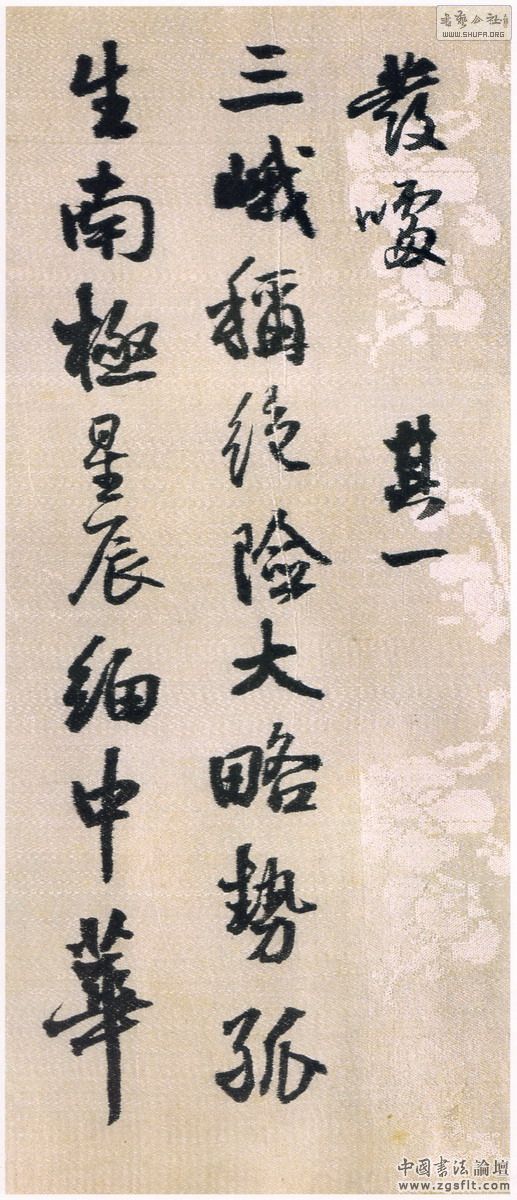 發嘎 其一
三峨稱絕險大略勢孤
生南極星辰細中華
書藝公社
WWW.SHUFA.ORG
中國書法論壇
www.zgsflt.com